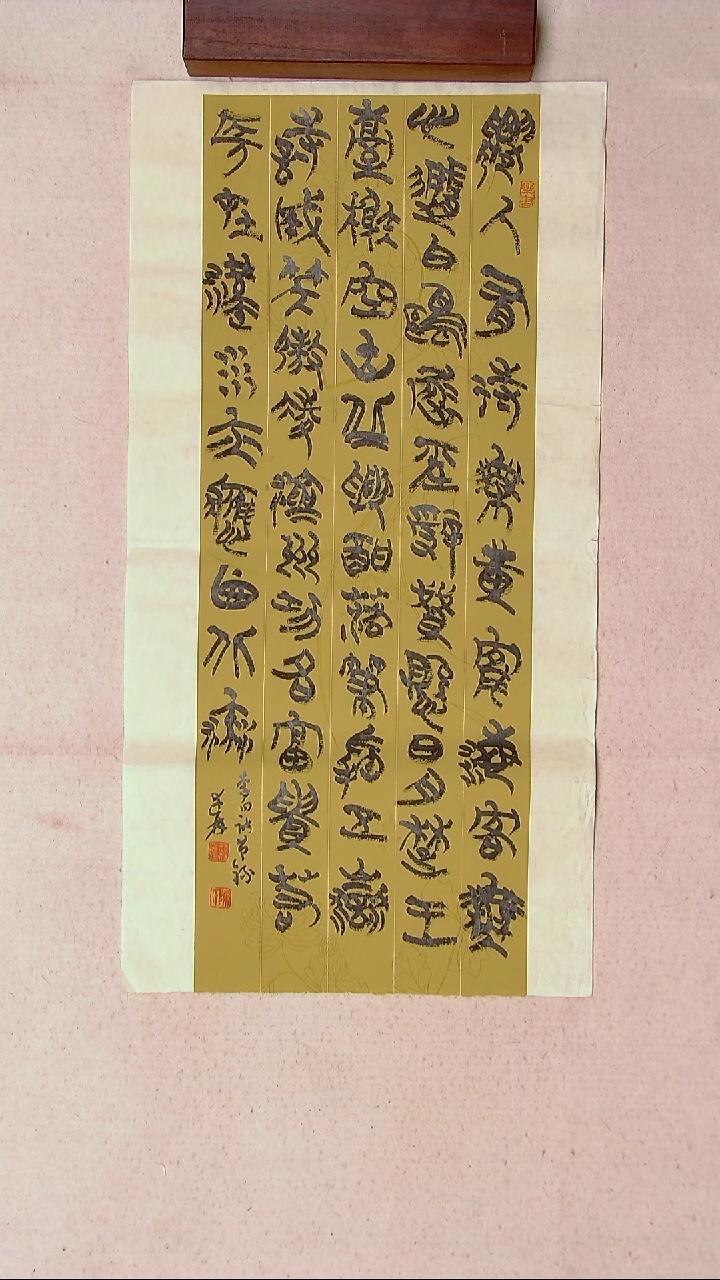 僊人有待乘黄鶴海客無
心隨白鷗屈平辭賦懸日月楚王
臺榭空山丘興酣落筆搖五嶽
詩成笑傲凌滄洲功名富貴若
長在漢水亦應西北流
李白詩